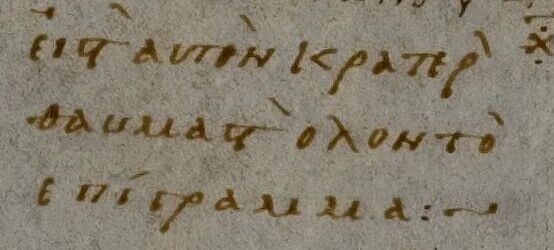 εις τ̀ αυτὸν κρατερ̀
θαυμαστ̀ ολον τὸ
επίγραμμα:~